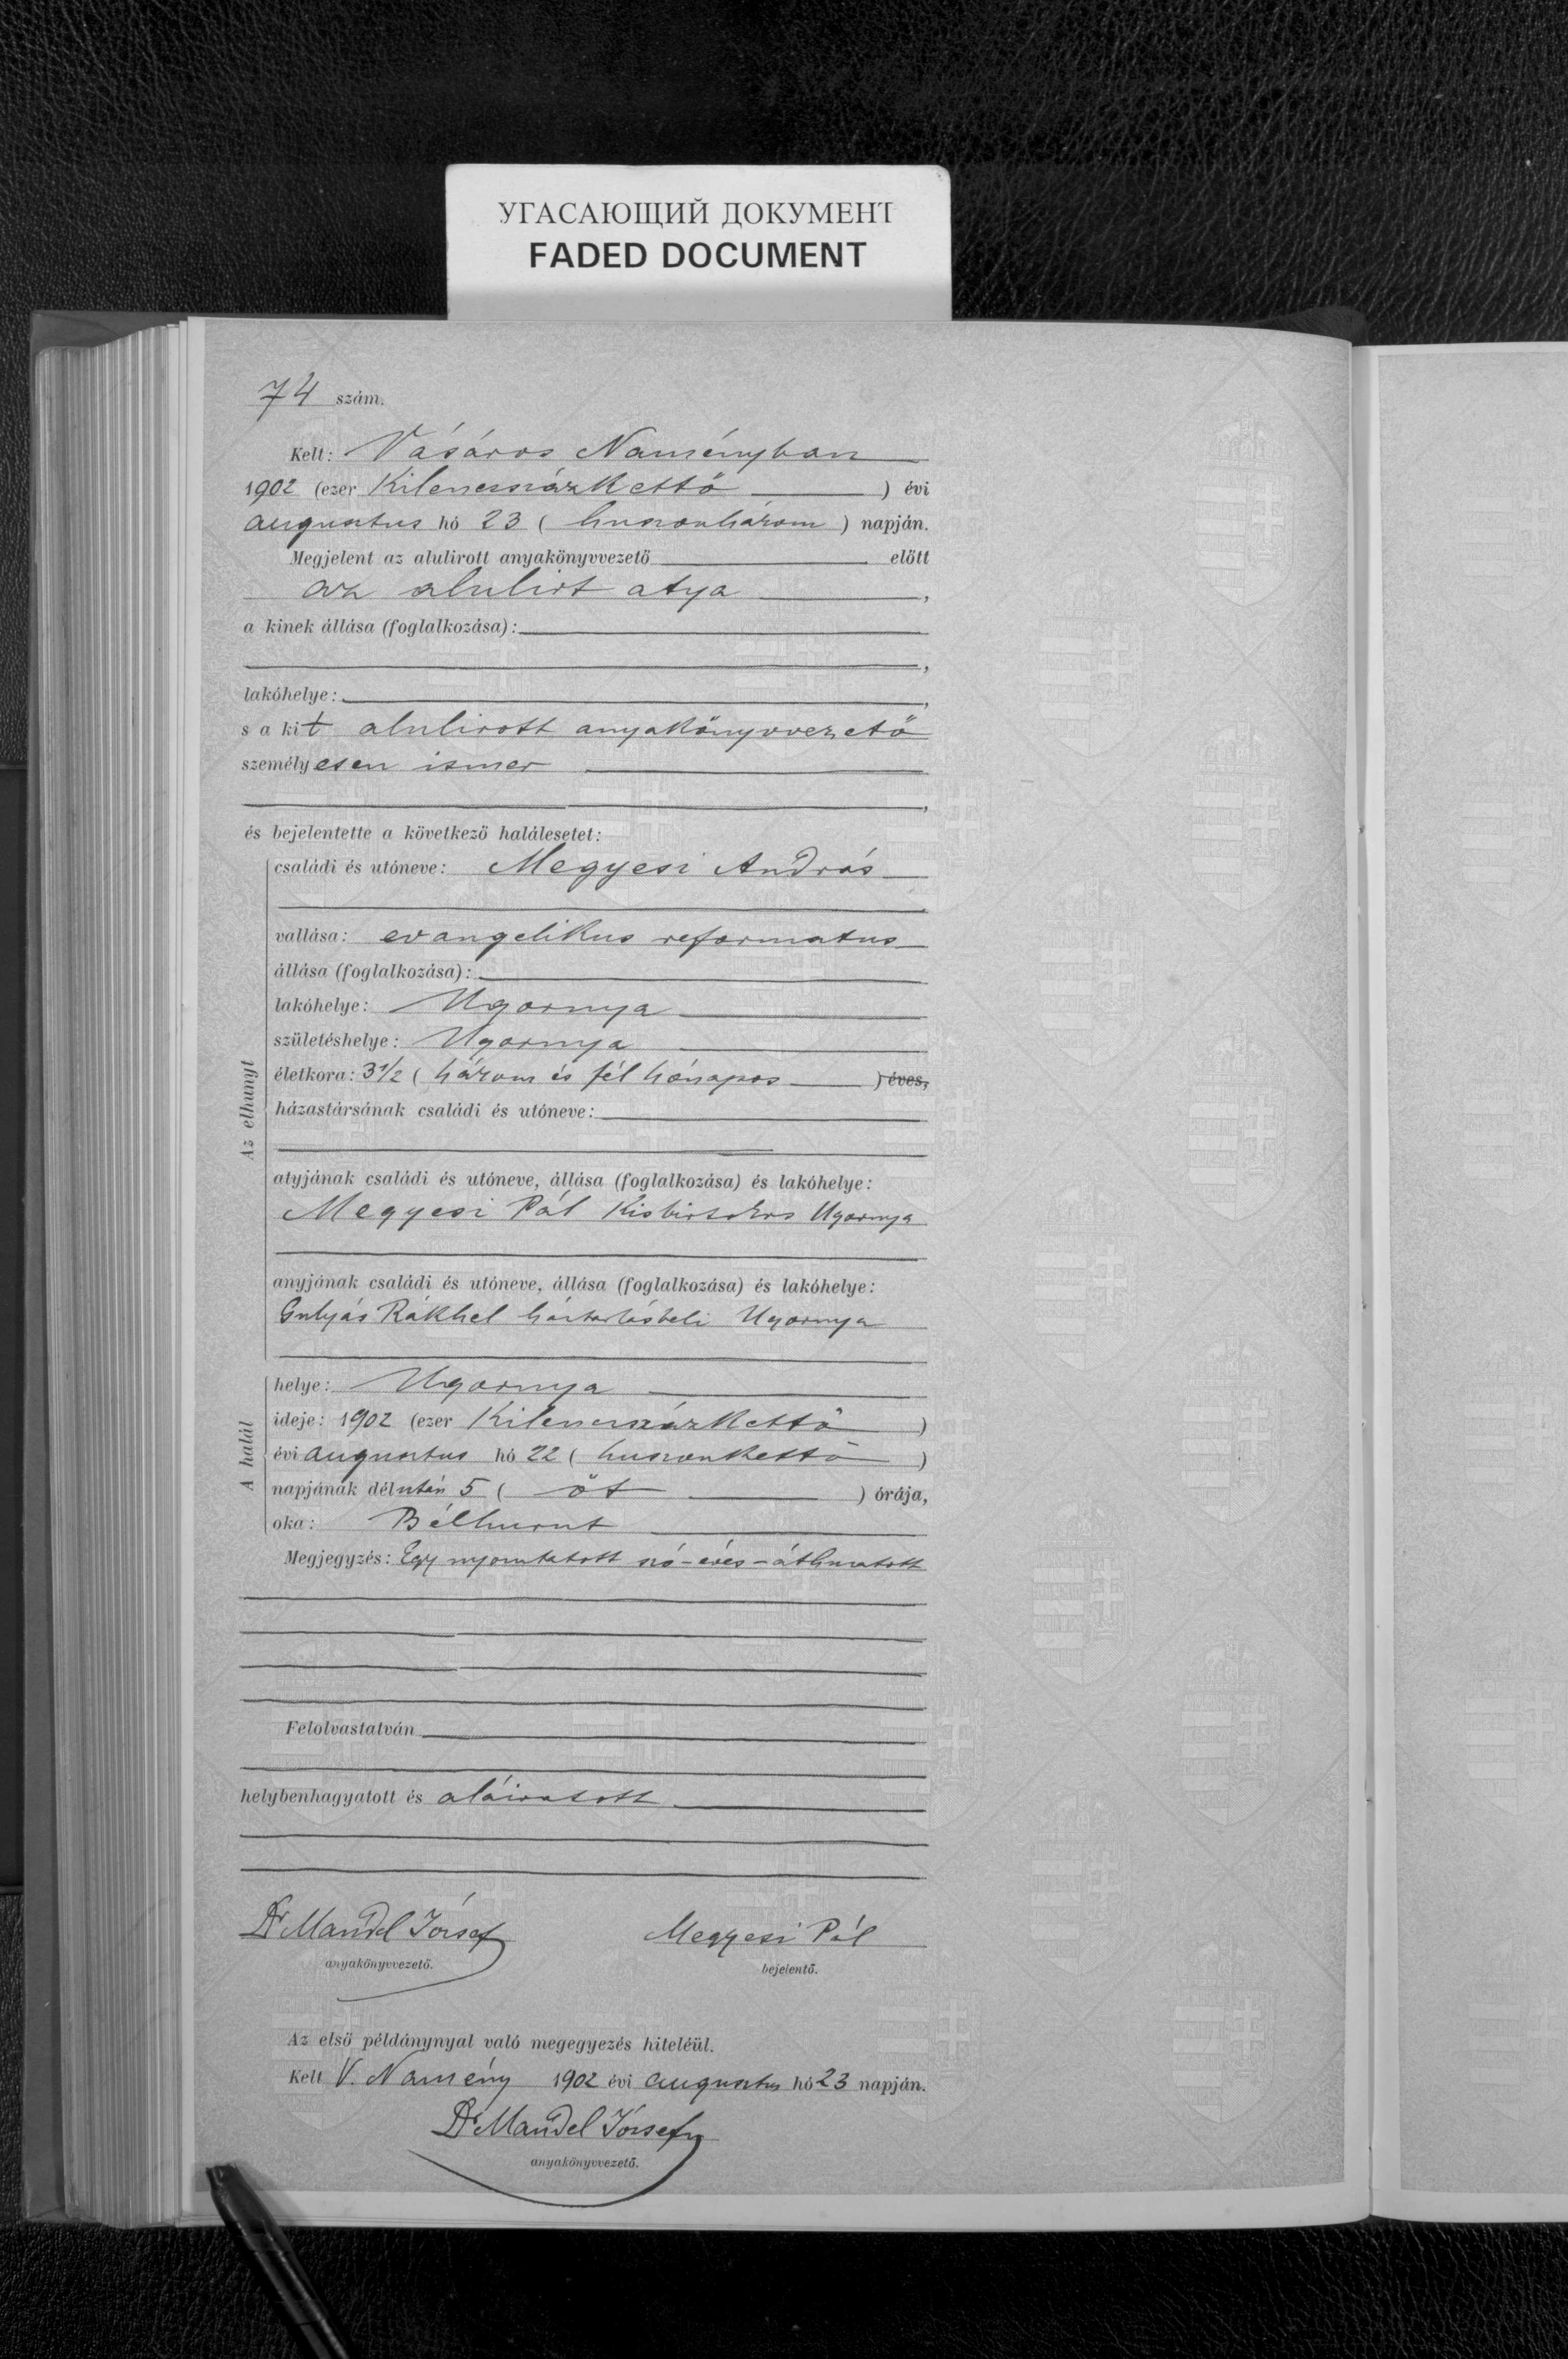 УГАСАЮЩИЙ ДОКУМЕНТ
FADED DOCUMENT
74 szám.
Kelt: Vásáros Naményban
1902 (ezer Kilenczszázkettő ) évi
augusztus hó 23 ( huszonhárom ) napján.
Megjelent az alulirott anyakönyvvezető előtt
az alulirt atya ,
a kinek állása (foglalkozása):
,
lakóhelye: ,
s a kit alulirott anyakönyvvezető
személyesen ismer
,
és bejelentette a következő halálesetet:
Az elhunyt
családi és utóneve: Megyesi András
vallása: evangelikus reformatus
állása (foglalkozása):
lakóhelye: Ugornya
születéshelye: Ugornya
életkora: 3½ ( három és fél hónapos ) éves,
házastársának családi és utóneve:
atyjának családi és utóneve, állása (foglalkozása) és lakóhelye:
Megyesi Pál Kisbirtokos Ugornya
anyjának családi és utóneve, állása (foglalkozása) és lakóhelye:
Gulyás Rákhel háztartásbeli Ugornya
A halál
helye: Ugornya
ideje: 1902 (ezer Kilenczszázkettő )
évi augusztus hó 22 ( huszonkettő )
napjának délután 5 ( öt ) órája,
oka: Bélhurut
Megjegyzés: Egy nyomtatott szó - éves - áthuzatott
Felolvastatván
helybenhagyatott és aláiratott
Dr Mandel József Megyesi Pál
anyakönyvvezető. bejelentő.
Az első példánynyal való megegyezés hiteléül.
Kelt V. Namény 1902 évi augusztus hó 23 napján.
Dr Mandel József
anyakönyvvezető.